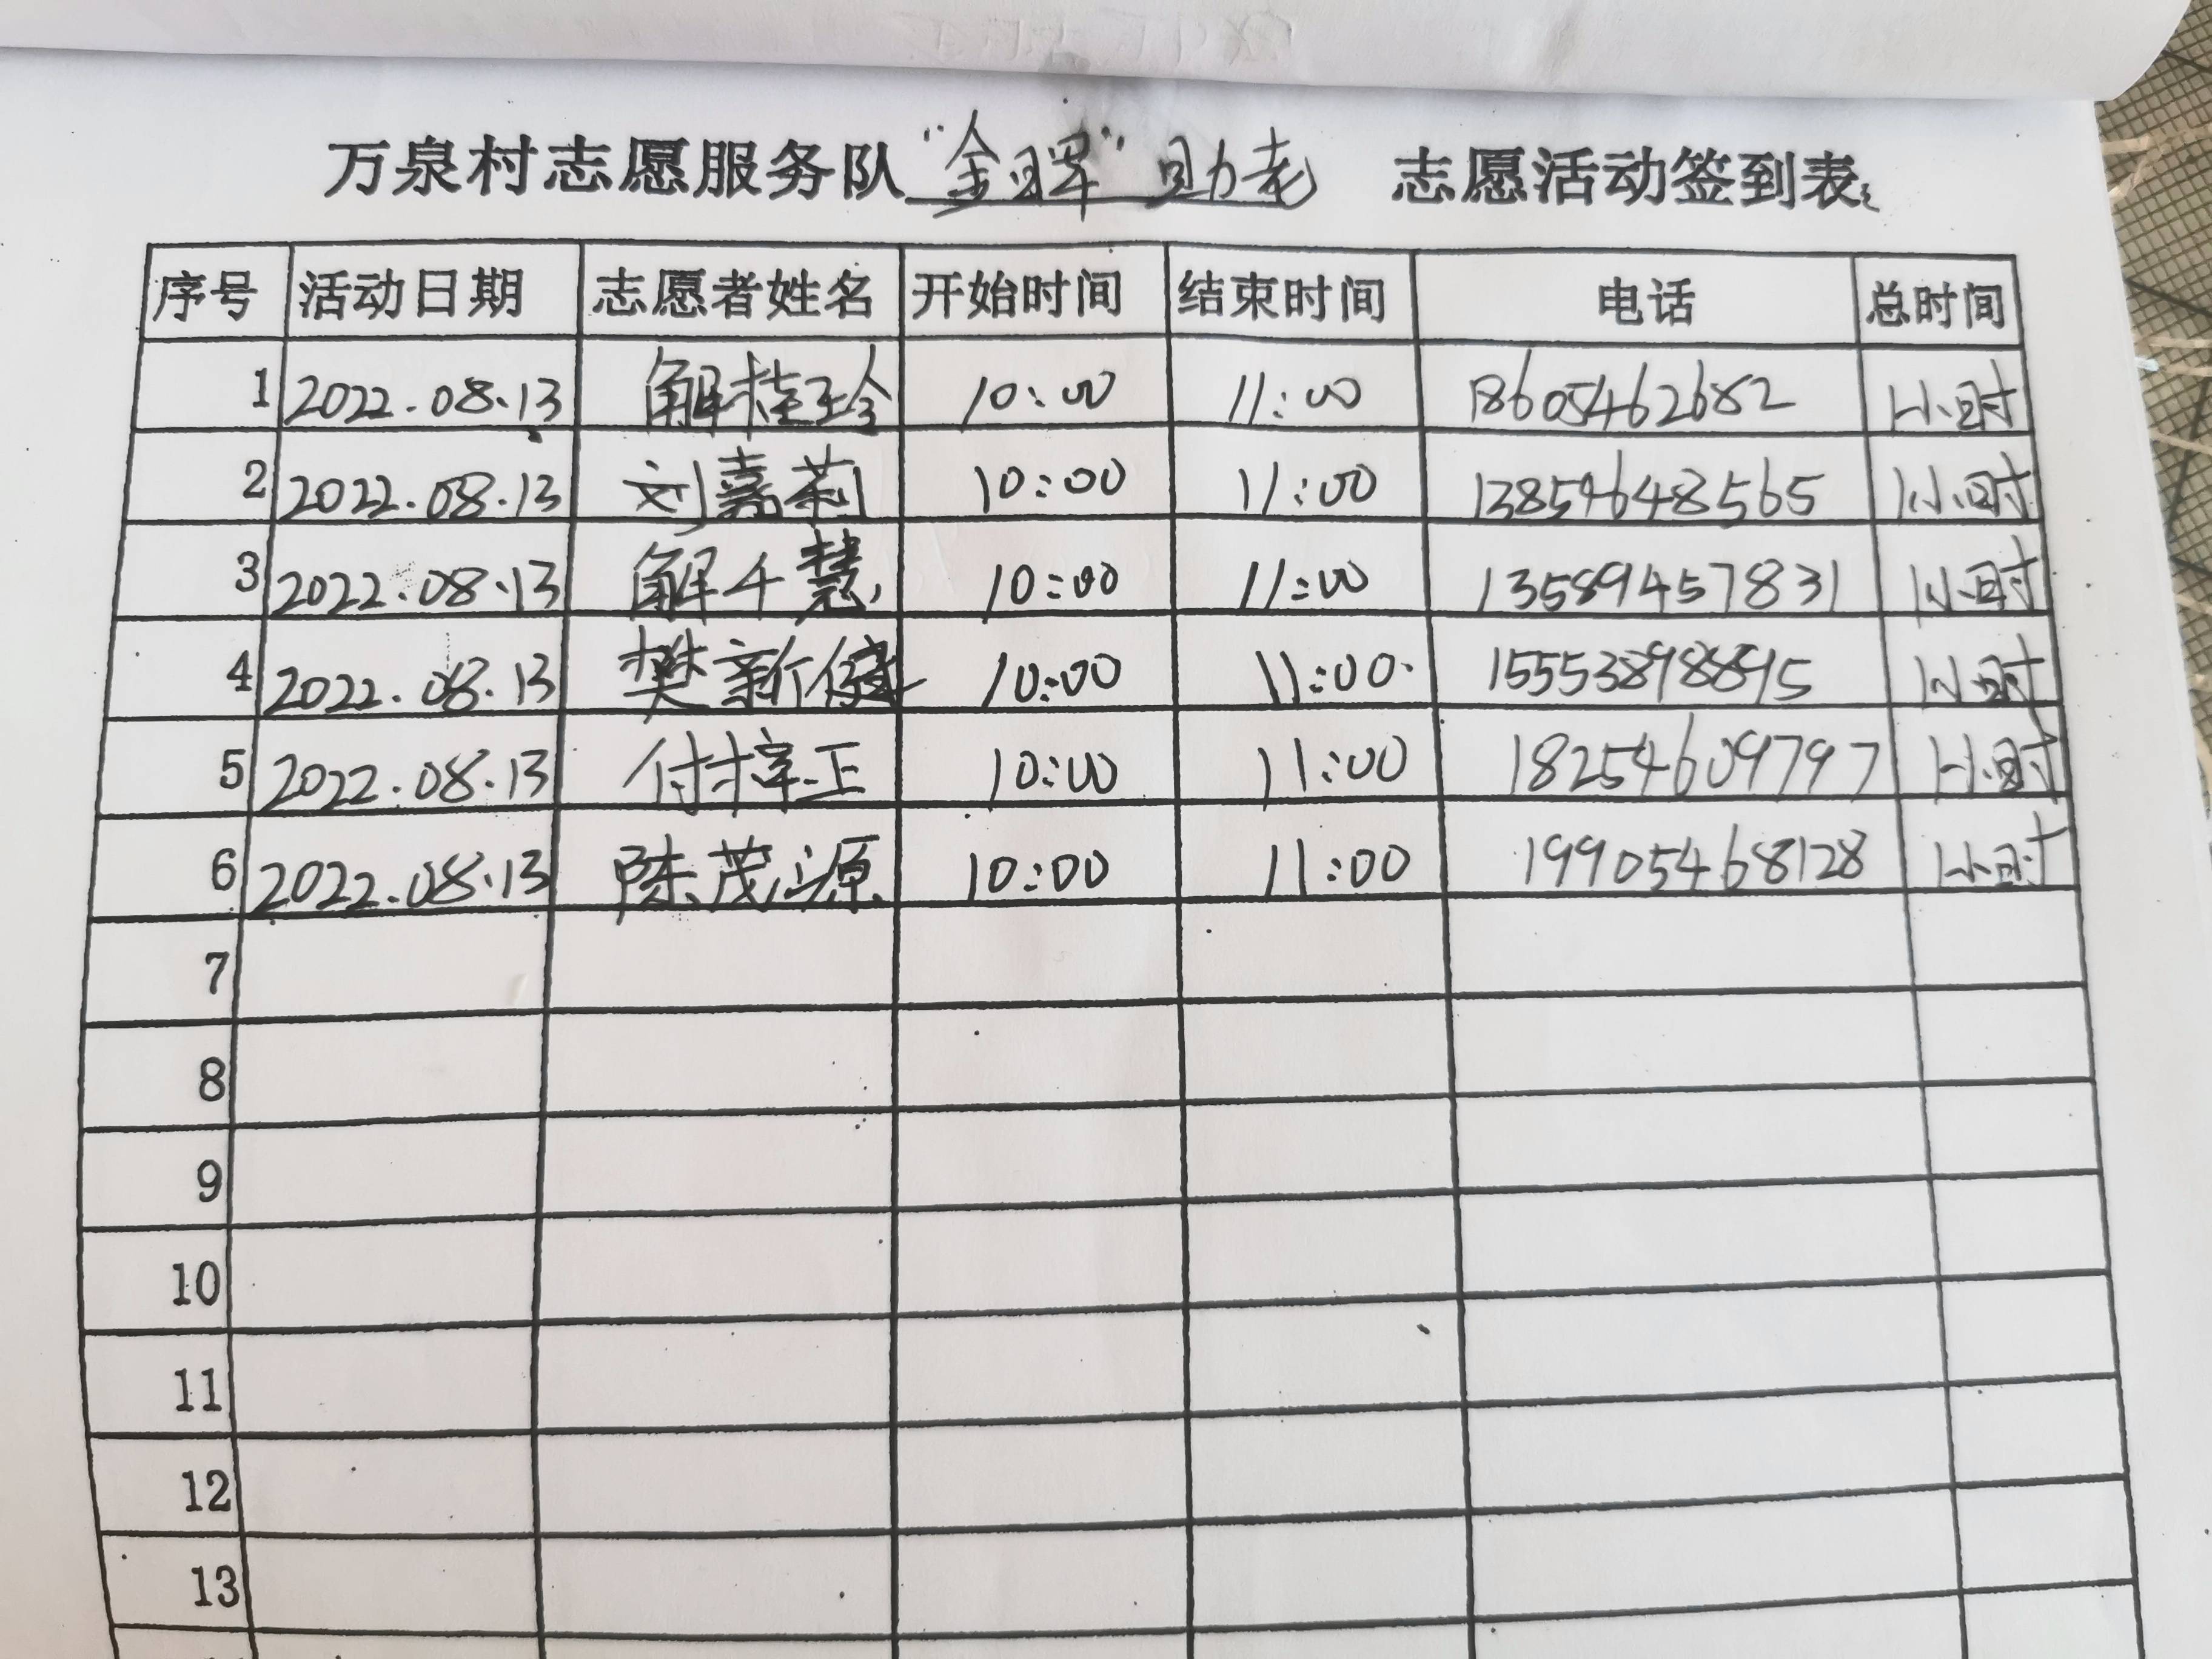 万泉村志愿服务队“金晖”助老 志愿活动签到表
序号 活动日期 志愿者姓名 开始时间 结束时间 电话 总时间
1 2022.08.13 解桂玲 10:00 11:00 18605462682 1小时
2 2022.08.13 刘嘉莉 10:00 11:00 13854648565 1小时
3 2022.08.13 解千慧 10:00 11:00 13589457831 1小时
4 2022.08.13 樊新健 10:00 11:00 15553898895 1小时
5 2022.08.13 付梓正 10:00 11:00 18254609797 1小时
6 2022.08.13 陈茂源 10:00 11:00 19905468128 1小时
7
8
9
10
11
12
13